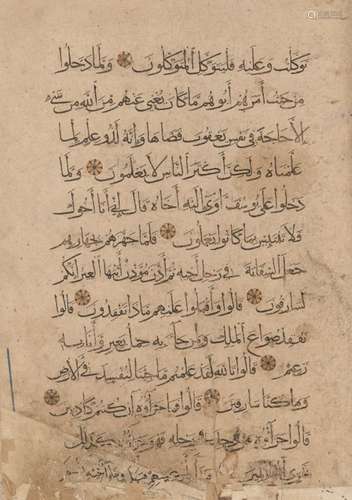 توكلت وعليه فليتوكل المتوكلون ولما دخلوا
من حيث أمرهم أبوهم ما كان يغني عنهم من الله من شيء
إلا حاجة في نفس يعقوب قضاها وإنه لذو علم لما
علمناه ولكن أكثر الناس لا يعلمون ولما
دخلوا على يوسف آوى إليه أخاه قال إني أنا أخوك
فلا تبتئس بما كانوا يعملون فلما جهزهم بجهازهم
جعل السقاية في رحل أخيه ثم أذن مؤذن أيتها العير إنكم
لسارقون قالوا وأقبلوا عليهم ماذا تفقدون قالوا
نفقد صواع الملك ولمن جاء به حمل بعير وأنا به
زعيم قالوا تالله لقد علمتم ما جئنا لنفسد في الأرض
وما كنا سارقين قالوا فما جزاؤه إن كنتم كاذبين
قالوا جزاؤه من وجد في رحله فهو جزاؤه كذلك
نجزي الظالمين